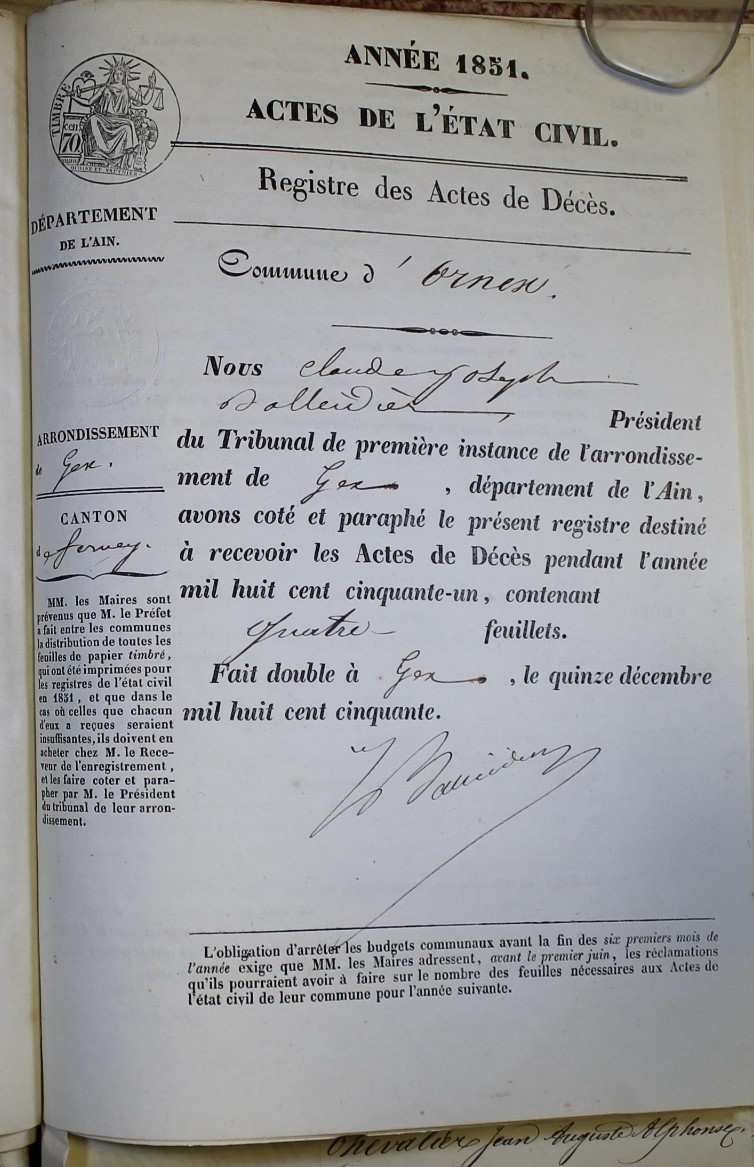 ANNÉE 1851.
ACTES DE L'ÉTAT CIVIL.
Registre des Actes de Décès.
Commune d' Ornex.
TIMBRE
cen
70
DÉPARTEMENT
DE L'AIN.
ARRONDISSEMENT
de Gex.
CANTON
de ferney.
MM. les Maires sont
prévenus que M. le Préfet
a fait entre les communes
la distribution de toutes les
feuilles de papier timbré,
qui ont été imprimées pour
les registres de l'état civil
en 1851, et que dans le
cas où celles que chacun
d'eux a reçues seraient
insuffisantes, ils doivent en
acheter chez M. le Rece-
veur de l'enregistrement,
et les faire coter et para-
pher par M. le Président
du tribunal de leur arron-
dissement.
Nous Claude joseph
Président
du Tribunal de première instance de l'arrondisse-
ment de Gex, département de l'Ain,
avons coté et paraphé le présent registre destiné
à recevoir les Actes de Décès pendant l'année
mil huit cent cinquante-un, contenant
quatre feuillets.
Fait double à Gex, le quinze décembre
mil huit cent cinquante.
L'obligation d'arrêter les budgets communaux avant la fin des six premiers mois de
l'année exige que MM. les Maires adressent, avant le premier juin, les réclamations
qu'ils pourraient avoir à faire sur le nombre des feuilles nécessaires aux Actes de
l'état civil de leur commune pour l'année suivante.
Chevalier Jean Auguste Alphonse.